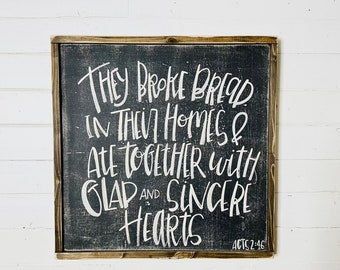 THEY BROKE BREAD
IN THEIR HOMES &
ATE TOGETHER WITH
GLAD AND SINCERE
HEARTS
ACTS 2:46